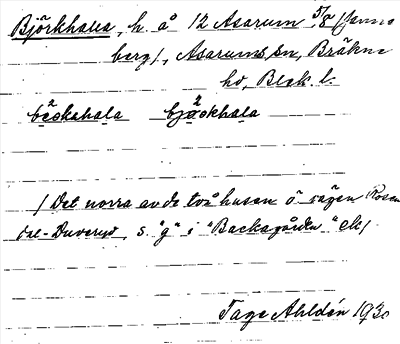 Björkhala, h. å 12 Asarum 5/8 (Janne
berg), Asarums sn, Bräkne
hd, Blek. l.
bæ̀okahala bjæ̀okhala
/ Det norra av de två husen ö vägen Rosen
dal-Duveryd, s. "g" i "Backagården" ek/
Tage Ahldén 1930